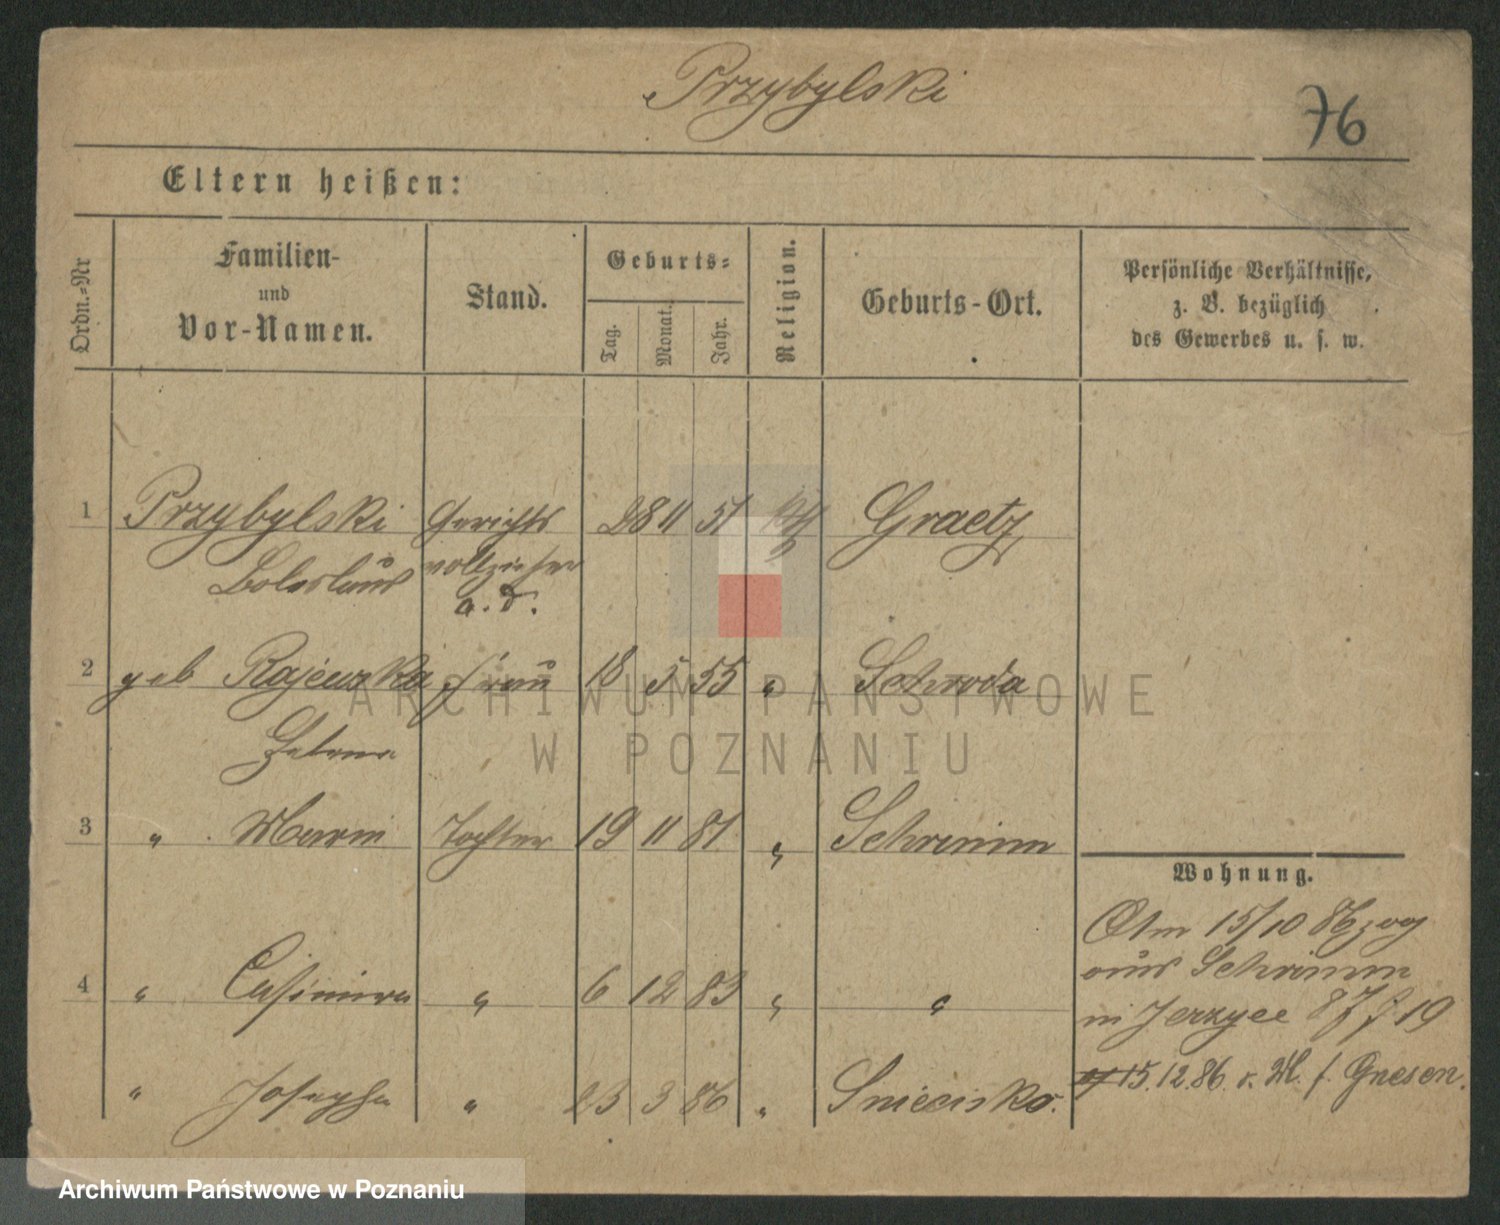 Przybylski
76
Eltern heißen:
Ordn.-Nr
Familien-
und
Vor-Namen.
Stand.
Geburts-
Tag.
Monat.
Jahr.
Religion.
Geburts-Ort.
Persönliche Verhältnisse,
z. B. bezüglich
des Gewerbes u. s. w.
1 Przybylski Gerichts 28 11 51 kth Graetz
Boleslaus vollzieher
a. D.
2 geb Rajewska Frau 18 5 55 " Schroda
Helena
3 " Marie Tochter 19 11 81 " Schrimm
4 " Casimira " 6 12 83 " "
" Josepha " 23 3 86 " Sniecisko.
Wohnung.
Am 15/10 86 zog
aus Schrimm
in Jerzyce 19
15.12.86. v. M. f. Gnesen.
ARCHIWUM PAŃSTWOWE
W POZNANIU
Archiwum Państwowe w Poznaniu